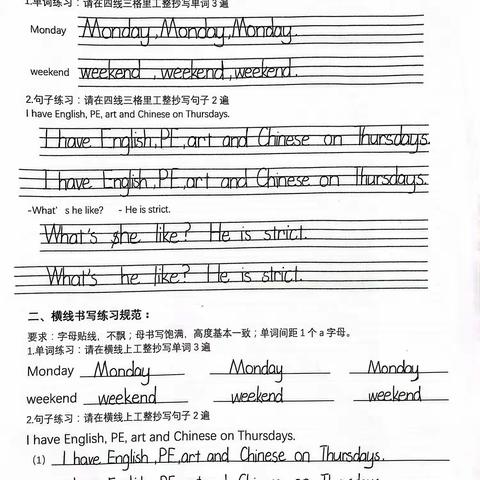 1.单词练习：请在四线三格里工整抄写单词3遍
Monday Monday,Monday,Monday.
weekend weekend ,weekend,weekend.
2.句子练习：请在四线三格里工整抄写句子2遍
I have English, PE, art and Chinese on Thursdays.
I have English,PE,art and Chinese on Thursdays.
I have English,PE,art and Chinese on Thursdays.
-What's he like? - He is strict.
What's she like? He is strict.
What's he like? He is strict.
二、横线书写练习规范：
要求：字母贴线，不飘；母书写饱满，高度基本一致；单词间距1个a字母。
1.单词练习：请在横线上工整抄写单词3遍
Monday Monday Monday Monday
weekend weekend weekend weekend
2.句子练习：请在横线上工整抄写句子2遍
I have English, PE, art and Chinese on Thursdays.
(1) I have English,PE,art and Chinese on Thursdays.